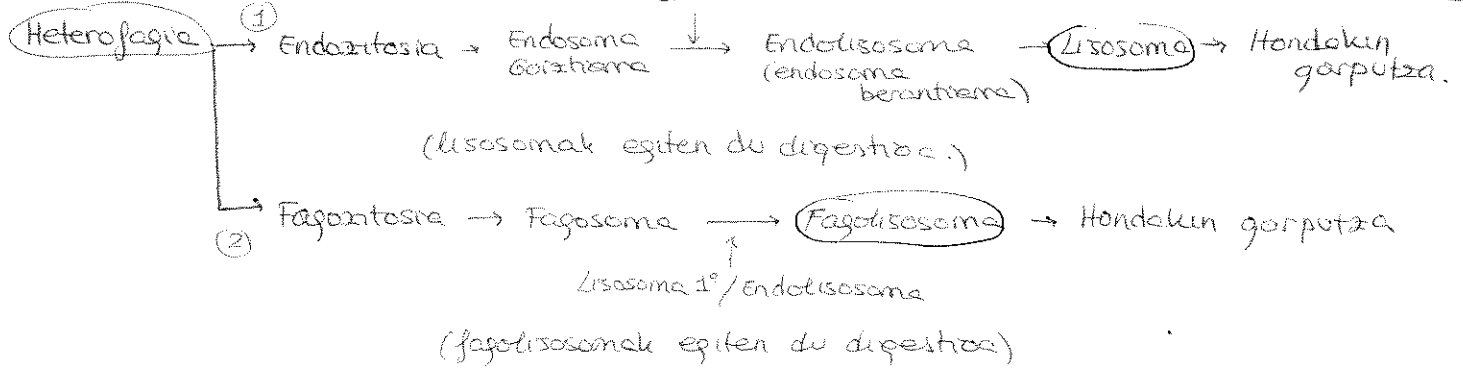 Heterofagia
① Endozitosia → Endosoma Goiztiarra → Endolisosoma (endosoma berantiarra) → Lisosoma → Hondakin gorputza.
(lisosomak egiten du digestioa.)
② Fagozitosia → Fagosoma → Fagolisosoma → Hondakin gorputza
Lisosoma 1º/Endolisosoma
(fagolisosomak egiten du digestioa)